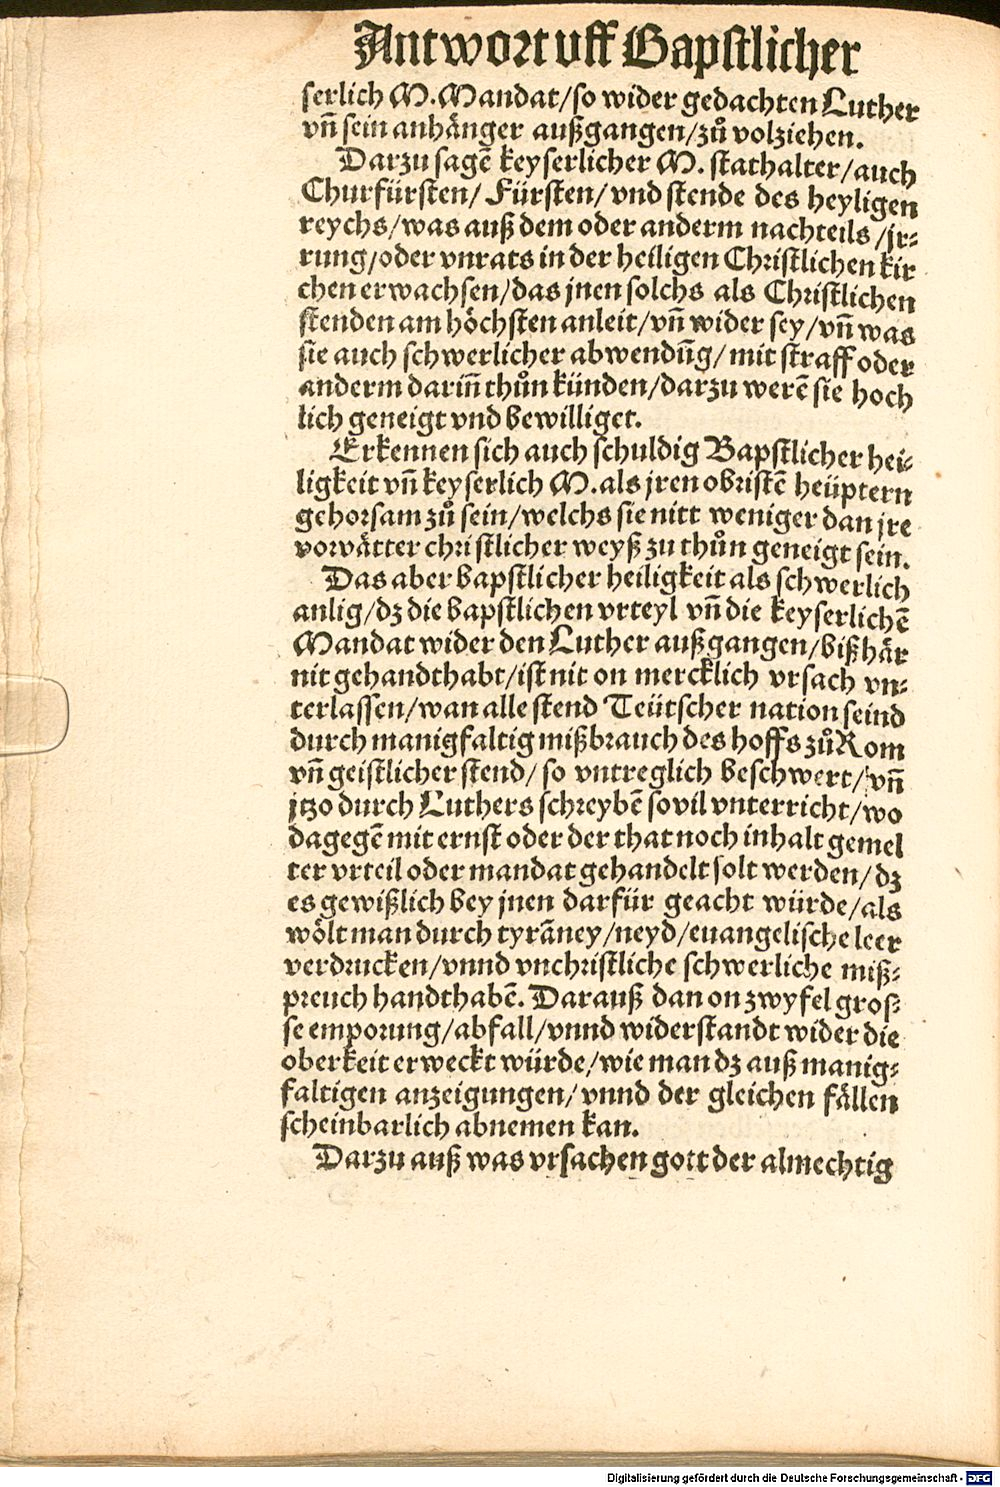 Antwort uff Bapstlicher
serlich M. Mandat/so wider gedachten Luther
vñ sein anhänger außgangen/zů volziehen.
Darzu sagē keyserlicher M. stathalter/auch
Churfürsten/ Fürsten/ vnd stende des heyligen
reychs/was auß dem oder anderm nachteils /jr⸗
rung/oder vnrats in der heiligen Christlichen kir
chen erwachsen/das jnen solchs als Christlichen
stenden am höchsten anleit/vñ wider sey/vñ was
sie auch schwerlicher abwendũg/ mit straff oder
anderm dariñ thůn künden/darzu werē sie hoch
lich geneigt vnd bewilliget.
Erkennen sich auch schuldig Bapstlicher hei⸗
ligkeit vñ keyserlich M. als jren obristē heüptern
gehorsam zů sein/welchs sie nitt weniger dan jre
vorvätter christlicher weyß zu thůn geneigt sein.
Das aber bapstlicher heiligkeit als schwerlich
anlig/dz die bapstlichen vrteyl vñ die keyserlichē
Mandat wider den Luther außgangen/bißhär
nit gehandthabt/ist nit on mercklich vrsach vn⸗
terlassen/wan alle stend Teütscher nation seind
durch manigfaltig mißbrauch des hoffs zů Rom
vñ geistlicher stend/ so vntreglich beschwert/vñ
jtzo durch Luthers schreybē sovil vnterricht/wo
dagegē mit ernst oder der that noch inhalt gemel
ter vrteil oder mandat gehandelt solt werden/dz
es gewißlich bey jnen darfür geacht würde/als
wölt man durch tyrāney/neyd/euangelische leer
verdrucken/vnnd vnchristliche schwerliche miß⸗
preuch handthabē. Darauß dan on zwyfel gros⸗
se emporung/abfall/vnnd widerstandt wider die
oberkeit erweckt würde/wie man dz auß manig⸗
faltigen anzeigungen/vnnd der gleichen fällen
scheinbarlich abnemen kan.
Darzu auß was vrsachen gott der almechtig
Digitalisierung gefördert durch die Deutsche Forschungsgemeinschaft - DFG